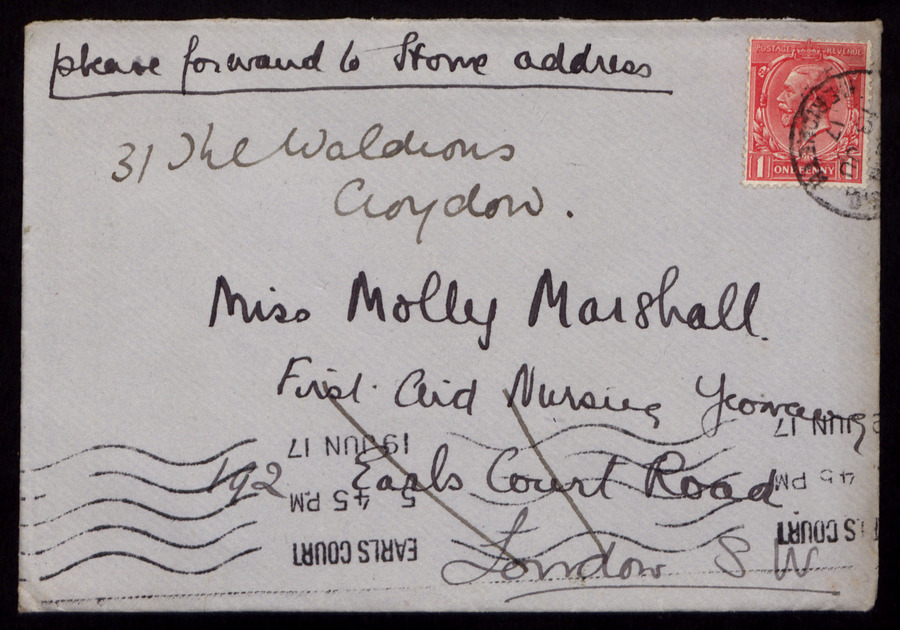 please forward to Home address
POSTAGE REVENUE
1 ONE PENNY 1
31 The Waldrons
Croydon.
Miss Molly Marshall.
First Aid Nursing Yeomanry
192 Earls Court Road
London S W
EARLS COURT
5 45 PM
19 JUN 17
LS COURT
45 PM
JUN 17